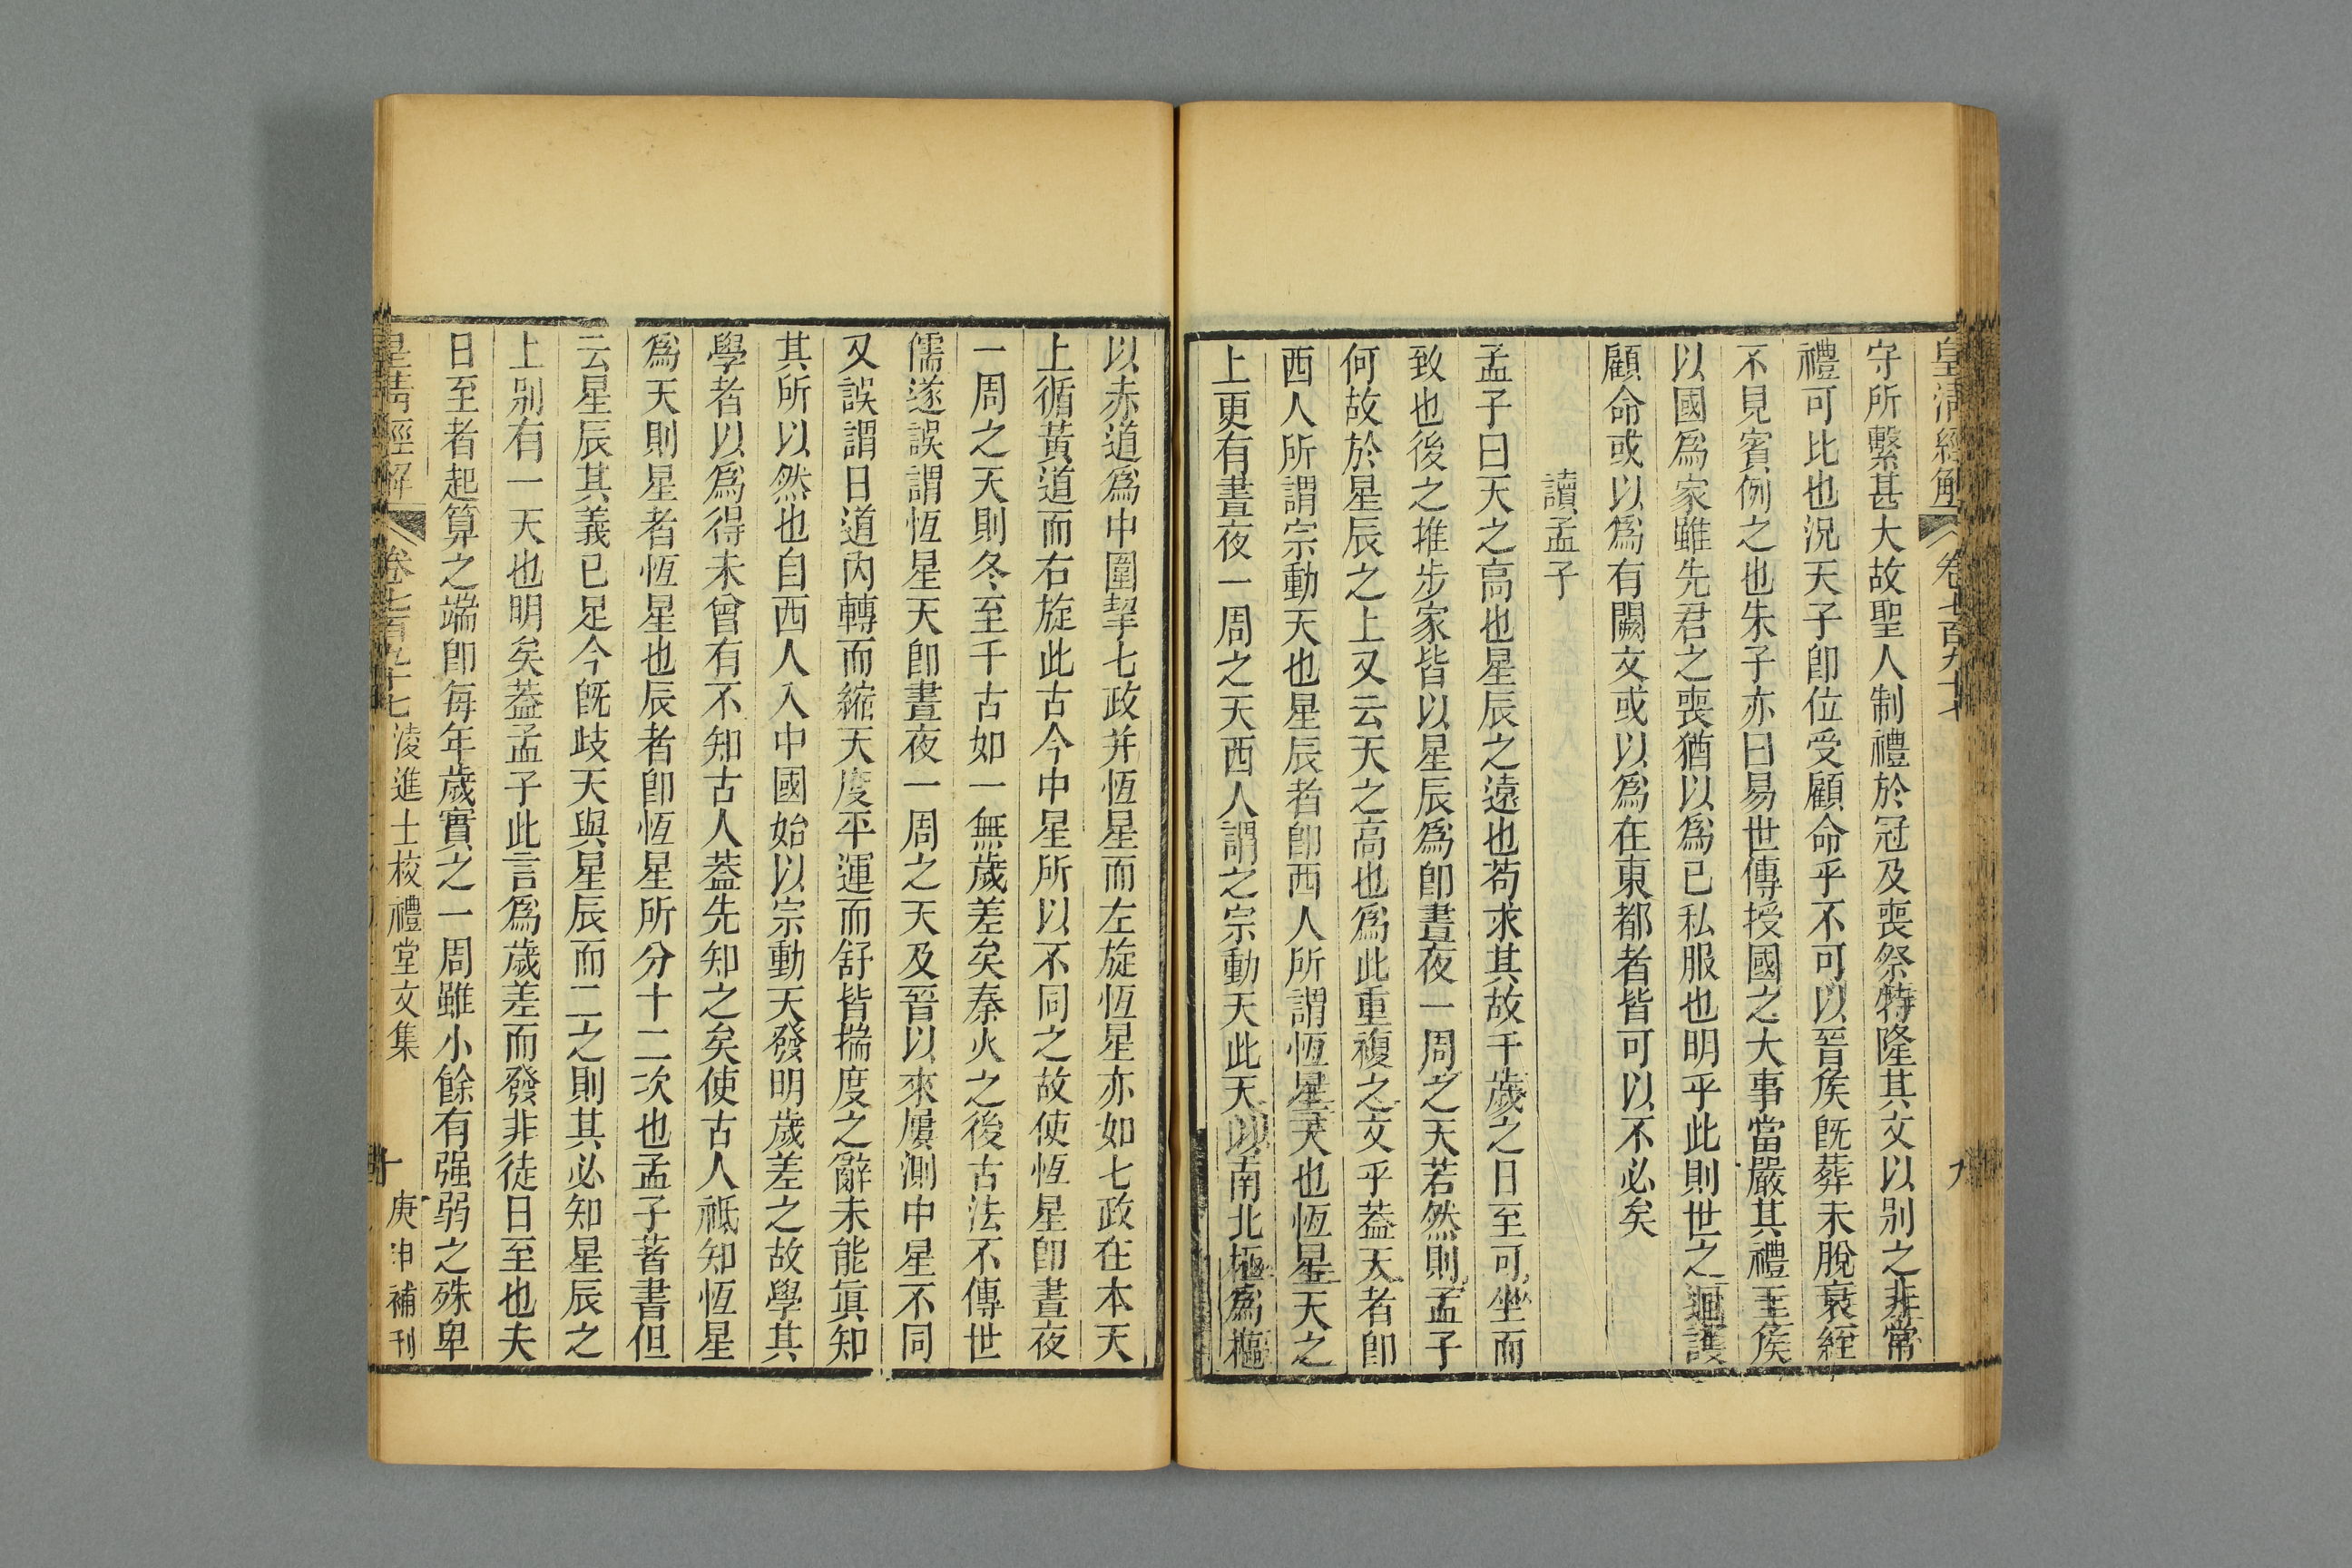 皇清經解 卷七百九十七 九
守所繫甚大故聖人制禮於冠及喪祭特隆其文以别之非常
禮可比也況天子卽位受顧命乎不可以晉矦旣葬未脫衰絰
不見賓例之也朱子亦曰易世傳授國之大事當嚴其禮王矦
以國爲家雖先君之喪猶以爲已私服也明乎此則世之迴護
顧命或以爲有闕文或以爲在東都者皆可以不必矣
讀孟子
孟子曰天之高也星辰之遠也苟求其故千歲之日至可坐而
致也後之推步家皆以星辰爲卽晝夜一周之天若然則孟子
何故於星辰之上又云天之高也爲此重複之文乎葢天者卽
西人所謂宗動天也星辰者卽西人所謂恆星天也恆星天之
上更有晝夜一周之天西人謂之宗動天此天以南北極爲樞
以赤道爲中圍挈七政并恆星而左旋恆星亦如七政在本天
上循黃道而右旋此古今中星所以不同之故使恆星卽晝夜
一周之天則冬至千古如一無歲差矣秦火之後古法不傳世
儒遂誤謂恆星天卽晝夜一周之天及晉以來屢測中星不同
又誤謂日道內轉而縮天度平運而舒皆揣度之辭未能眞知
其所以然也自西人入中國始以宗動天發明歲差之故學其
學者以爲得未曾有不知古人葢先知之矣使古人祗知恆星
爲天則星者恆星也辰者卽恆星所分十二次也孟子著書但
云星辰其義已足今旣歧天與星辰而二之則其必知星辰之
上别有一天也明矣葢孟子此言爲歲差而發非徒日至也夫
日至者起算之端卽每年歲實之一周雖小餘有强弱之殊卑
皇清經解 卷七百九十七 淩進士校禮堂文集 十 庚申補刊